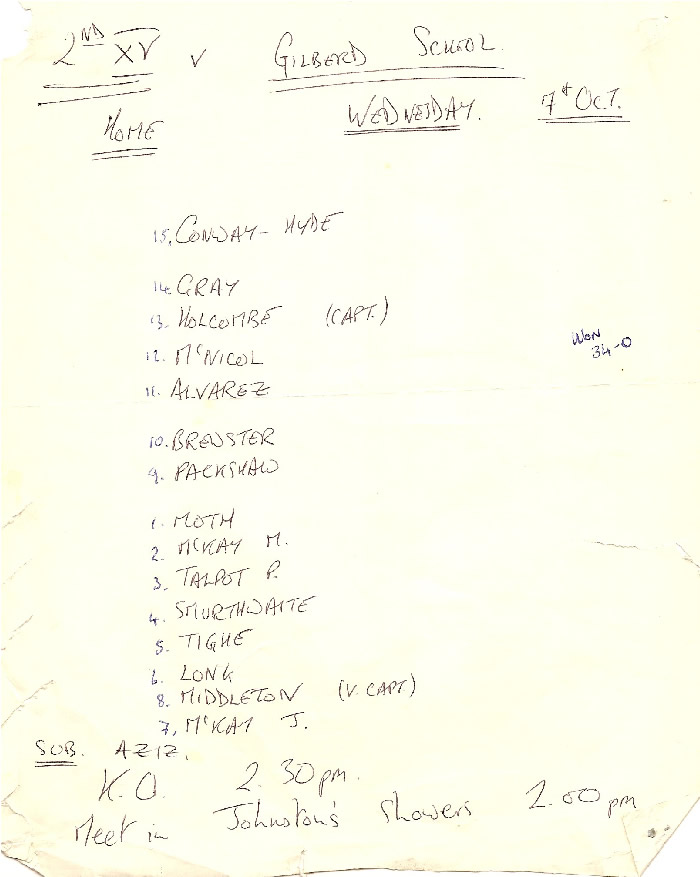 2ND XV v GILBERD SCHOOL.
HOME WEDNESDAY. 7th OCT.
15. CONWAY-HYDE
14. GRAY
13. HOLCOMBE (CAPT.)
12. McNICOL
WON
34-0
11. ALVAREZ
10. BREWSTER
9. PACKSHAW
1. MOTH
2. McKAY M.
3. TALPOT P.
4. SMURTHWAITE
5. TIGHE
6. LONG
8. MIDDLETON (V. CAPT)
7. McKAY J.
SUB. AZIZ.
K.O. 2.30pm.
Meet in Johnston's showers 2.00pm